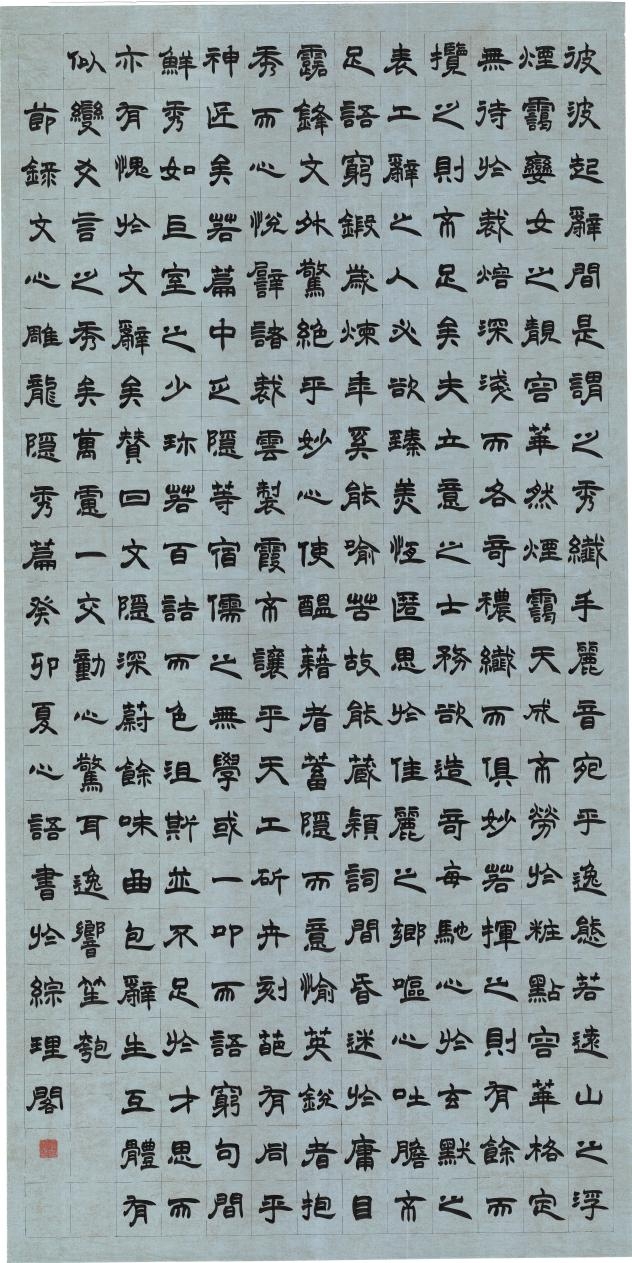 彼波起辭間是謂之秀纖手麗音宛乎逸態若遠山之浮
煙靄孌女之靚容華然煙靄天成不勞於粧點容華格定
無待於裁熔深淺而各奇穠纖而俱妙若揮之則有餘而
攬之則不足矣夫立意之士務欲造奇每馳心於玄默之
表工辭之人必欲臻美恆匿思於佳麗之鄉嘔心吐膽不
足語窮鍛歲煉年奚能喻苦故能藏穎詞間昏迷於庸目
露鋒文外驚絕乎妙心使醞藉者蓄隱而意愉英銳者抱
秀而心悅譬諸裁雲製霞不讓乎天工斫卉刻葩有同乎
神匠矣若篇中乏隱等宿儒之無學或一叩而語窮句間
鮮秀如巨室之少珍若百詰而色沮斯並不足於才思而
亦有愧於文辭矣贊曰文隱深蔚餘味曲包辭生互體有
似變爻言之秀矣萬慮一交動心驚耳逸響笙匏
節錄文心雕龍隱秀篇癸卯夏心語書於綜理閣